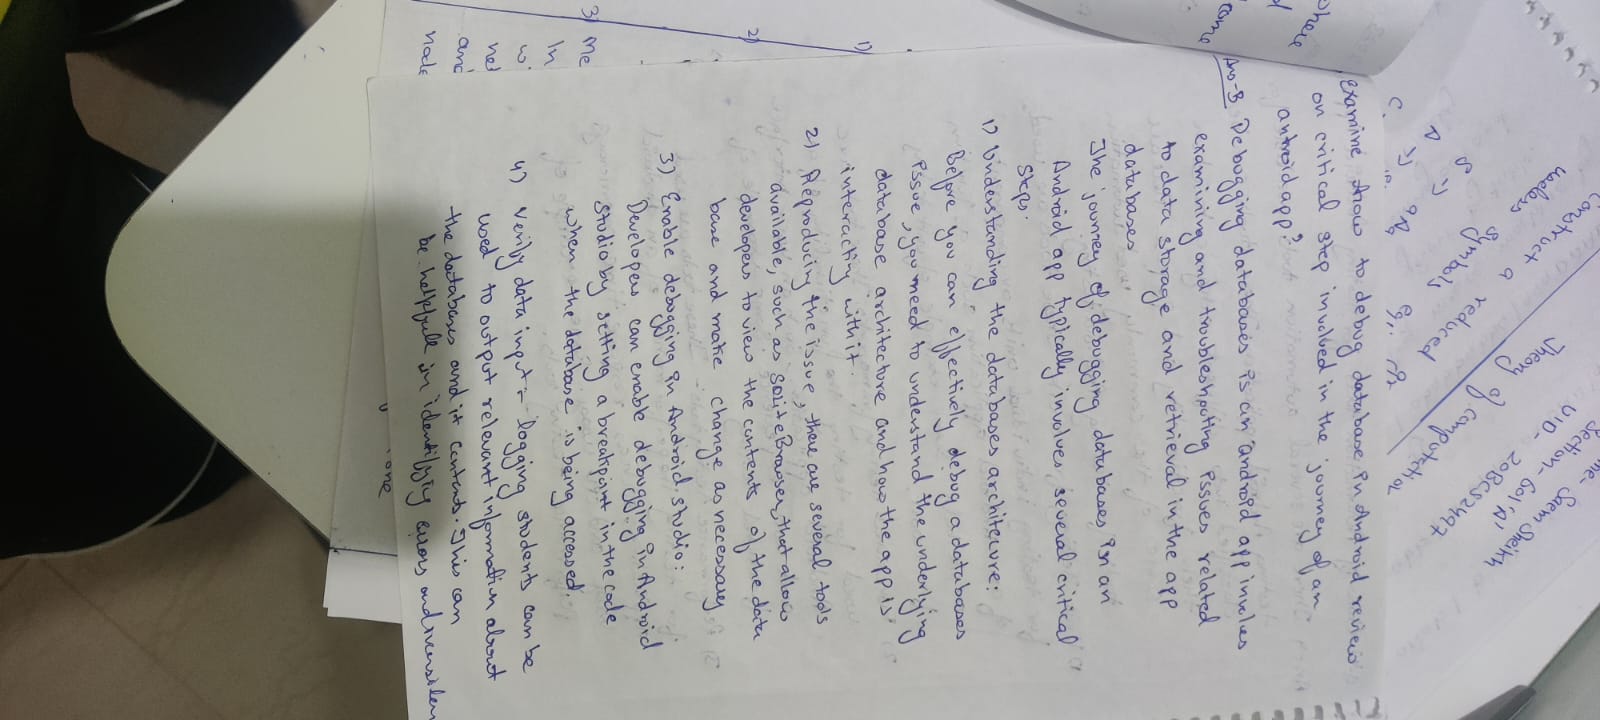 me- Saem Sheikh
Section- 601 'A'
UID- 20BCS2497
Theory of computation
Construct a reduced
useless symbols eg:
S →
A →
C.
where
come
1)
2)
3) Me
In
wi
net
and
node
Examine how to debug database in Android review
on critical step involved in the journey of an
antroid app?
Ans-3 Debugging databases is an android app involves
examining and troubleshooting issues related
to data storage and retrieval in the app
databases
The journey of debugging databases in an
Android app typically involves several critical
Steps.
1) Understanding the databases architecure:
Before you can effectively debug a databases
issue, you need to understand the underlying
database architecture and how the app is
interacting with it.
2) Reproducing the issue, there are several tools
available, such as SQLite Browser, that allow
developers to view the contents of the data
base and make change as necessary
3) Enable debugging in Android studio:
Developers can enable debugging in Android
Studio by setting a breakpoint in the code
when the database is being accessed.
4) Verify data input:- logging students can be
used to output relevant information about
the databases and it contents. This can
be helpfull in identifying errors and
one